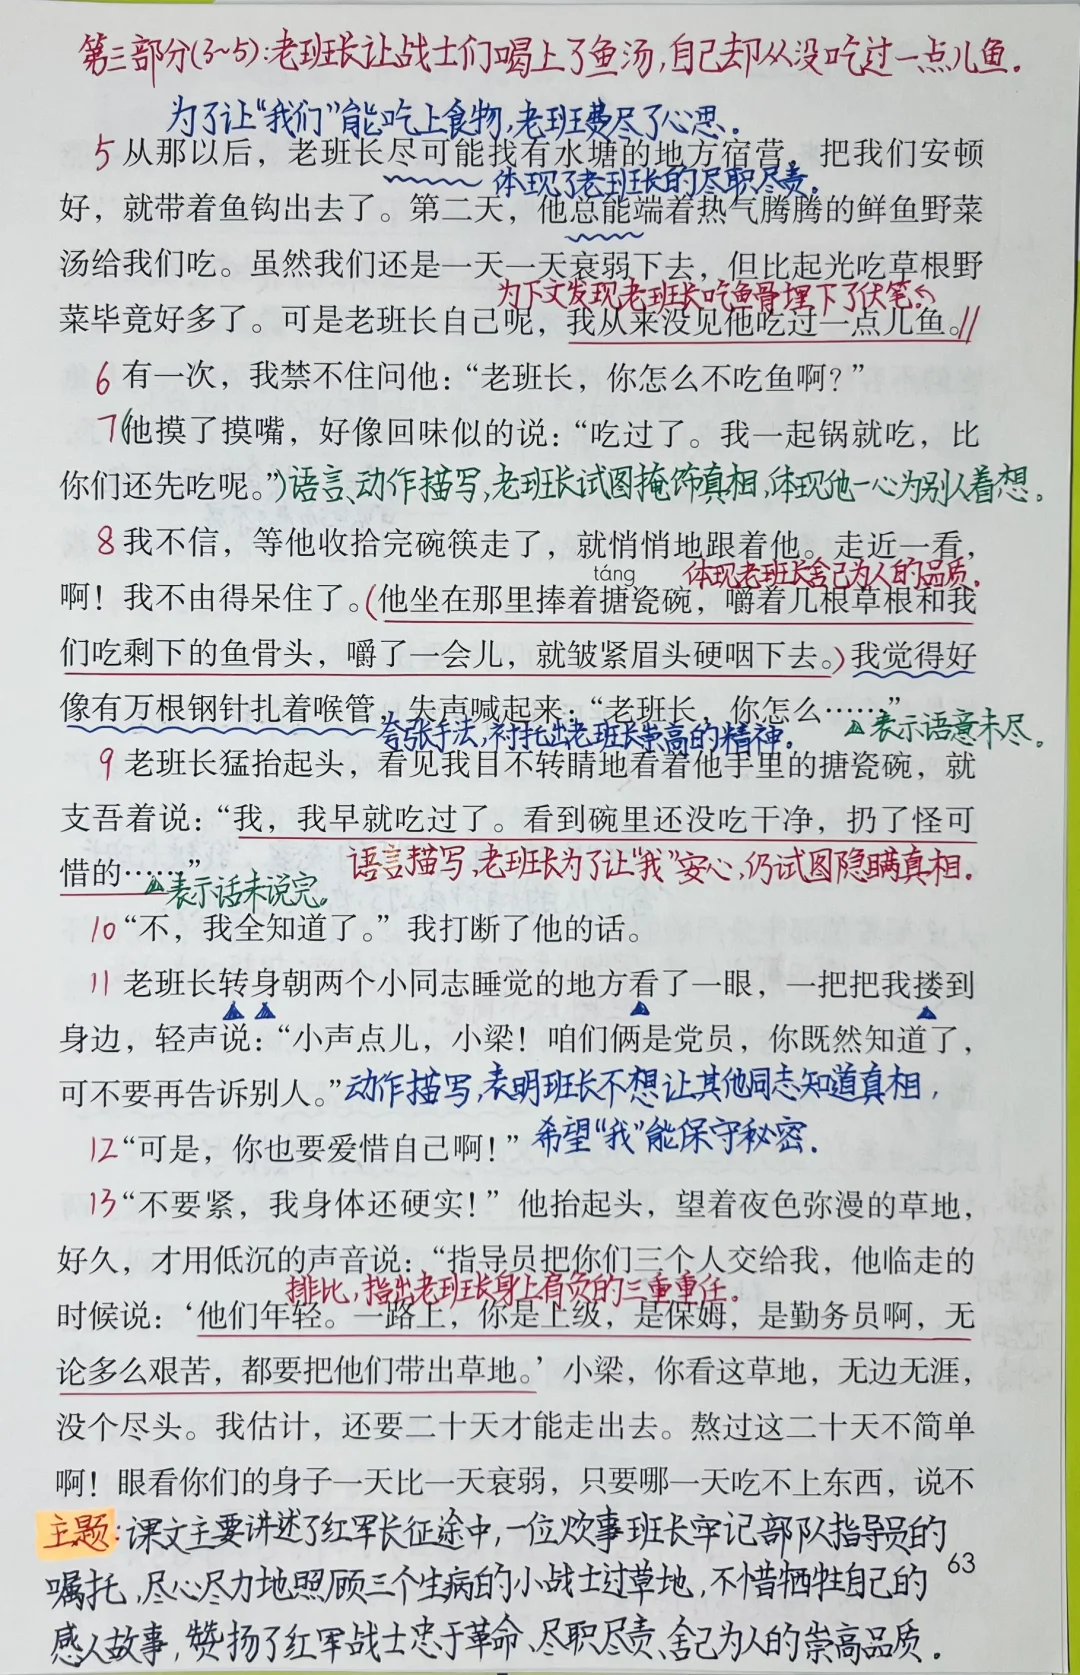 第三部分(3~5):老班长让战士们喝上了鱼汤,自己却从没吃过一点儿鱼。
为了让“我们”能吃上食物,老班费尽了心思。
5 从那以后，老班长尽可能找有水塘的地方宿营，把我们安顿
体现了老班长的尽职尽责。
好，就带着鱼钩出去了。第二天，他总能端着热气腾腾的鲜鱼野菜
汤给我们吃。虽然我们还是一天一天衰弱下去，但比起光吃草根野
为下文发现老班长吃鱼骨埋下了伏笔。
菜毕竟好多了。可是老班长自己呢，我从来没见他吃过一点儿鱼。//
6 有一次，我禁不住问他：“老班长，你怎么不吃鱼啊？”
7(他摸了摸嘴，好像回味似的说：“吃过了。我一起锅就吃，比
你们还先吃呢。”)语言、动作描写,老班长试图掩饰真相,体现他一心为别人着想。
8 我不信，等他收拾完碗筷走了，就悄悄地跟着他。走近一看，
táng 体现老班长舍己为人的品质。
啊！我不由得呆住了。(他坐在那里捧着搪瓷碗，嚼着几根草根和我
们吃剩下的鱼骨头，嚼了一会儿，就皱紧眉头硬咽下去。)我觉得好
像有万根钢针扎着喉管，失声喊起来：“老班长，你怎么……”
夸张手法,衬托出老班长崇高的精神。 表示语意未尽。
9 老班长猛抬起头，看见我目不转睛地看着他手里的搪瓷碗，就
支吾着说：“我，我早就吃过了。看到碗里还没吃干净，扔了怪可
惜的……” 语言描写,老班长为了让“我”安心,仍试图隐瞒真相。
表示话未说完。
10 “不，我全知道了。”我打断了他的话。
11 老班长转身朝两个小同志睡觉的地方看了一眼，一把把我搂到
身边，轻声说：“小声点儿，小梁！咱们俩是党员，你既然知道了，
可不要再告诉别人。”动作描写,表明班长不想让其他同志知道真相,
希望“我”能保守秘密。
12 “可是，你也要爱惜自己啊！”
13 “不要紧，我身体还硬实！”他抬起头，望着夜色弥漫的草地，
好久，才用低沉的声音说：“指导员把你们三个人交给我，他临走的
排比,指出老班长身上肩负的三重重任。
时候说：‘他们年轻。一路上，你是上级，是保姆，是勤务员啊，无
论多么艰苦，都要把他们带出草地。’小梁，你看这草地，无边无涯，
没个尽头。我估计，还要二十天才能走出去。熬过这二十天不简单
啊！眼看你们的身子一天比一天衰弱，只要哪一天吃不上东西，说不
主题:课文主要讲述了红军长征途中,一位炊事班长牢记部队指导员的
63
嘱托,尽心尽力地照顾三个生病的小战士过草地,不惜牺牲自己的
感人故事,赞扬了红军战士忠于革命、尽职尽责、舍己为人的崇高品质。